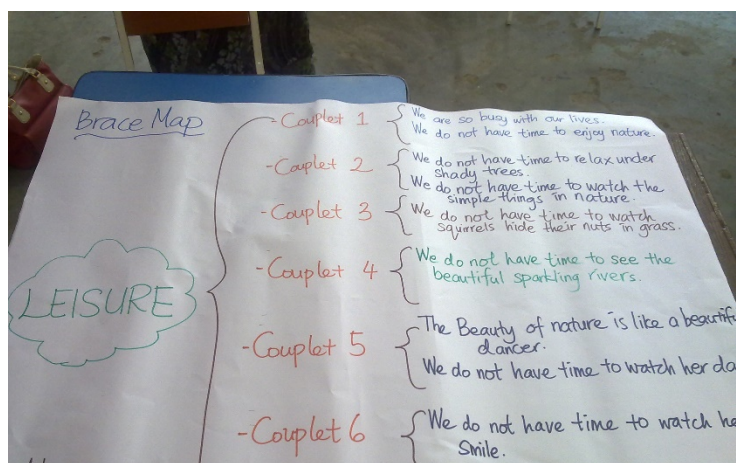 Brace Map
LEISURE
- Couplet 1
We are so busy with our lives.
We do not have time to enjoy nature.
- Couplet 2
We do not have time to relax under
shady trees.
We do not have time to watch the
simple things in nature.
- Couplet 3
We do not have time to watch
squirrels hide their nuts in grass.
- Couplet 4
We do not have time to see the
beautiful sparkling rivers.
- Couplet 5
The Beauty of nature is like a
dancer.
We do not have time to watch her
- Couplet 6
We do not have time to watch
Smile.